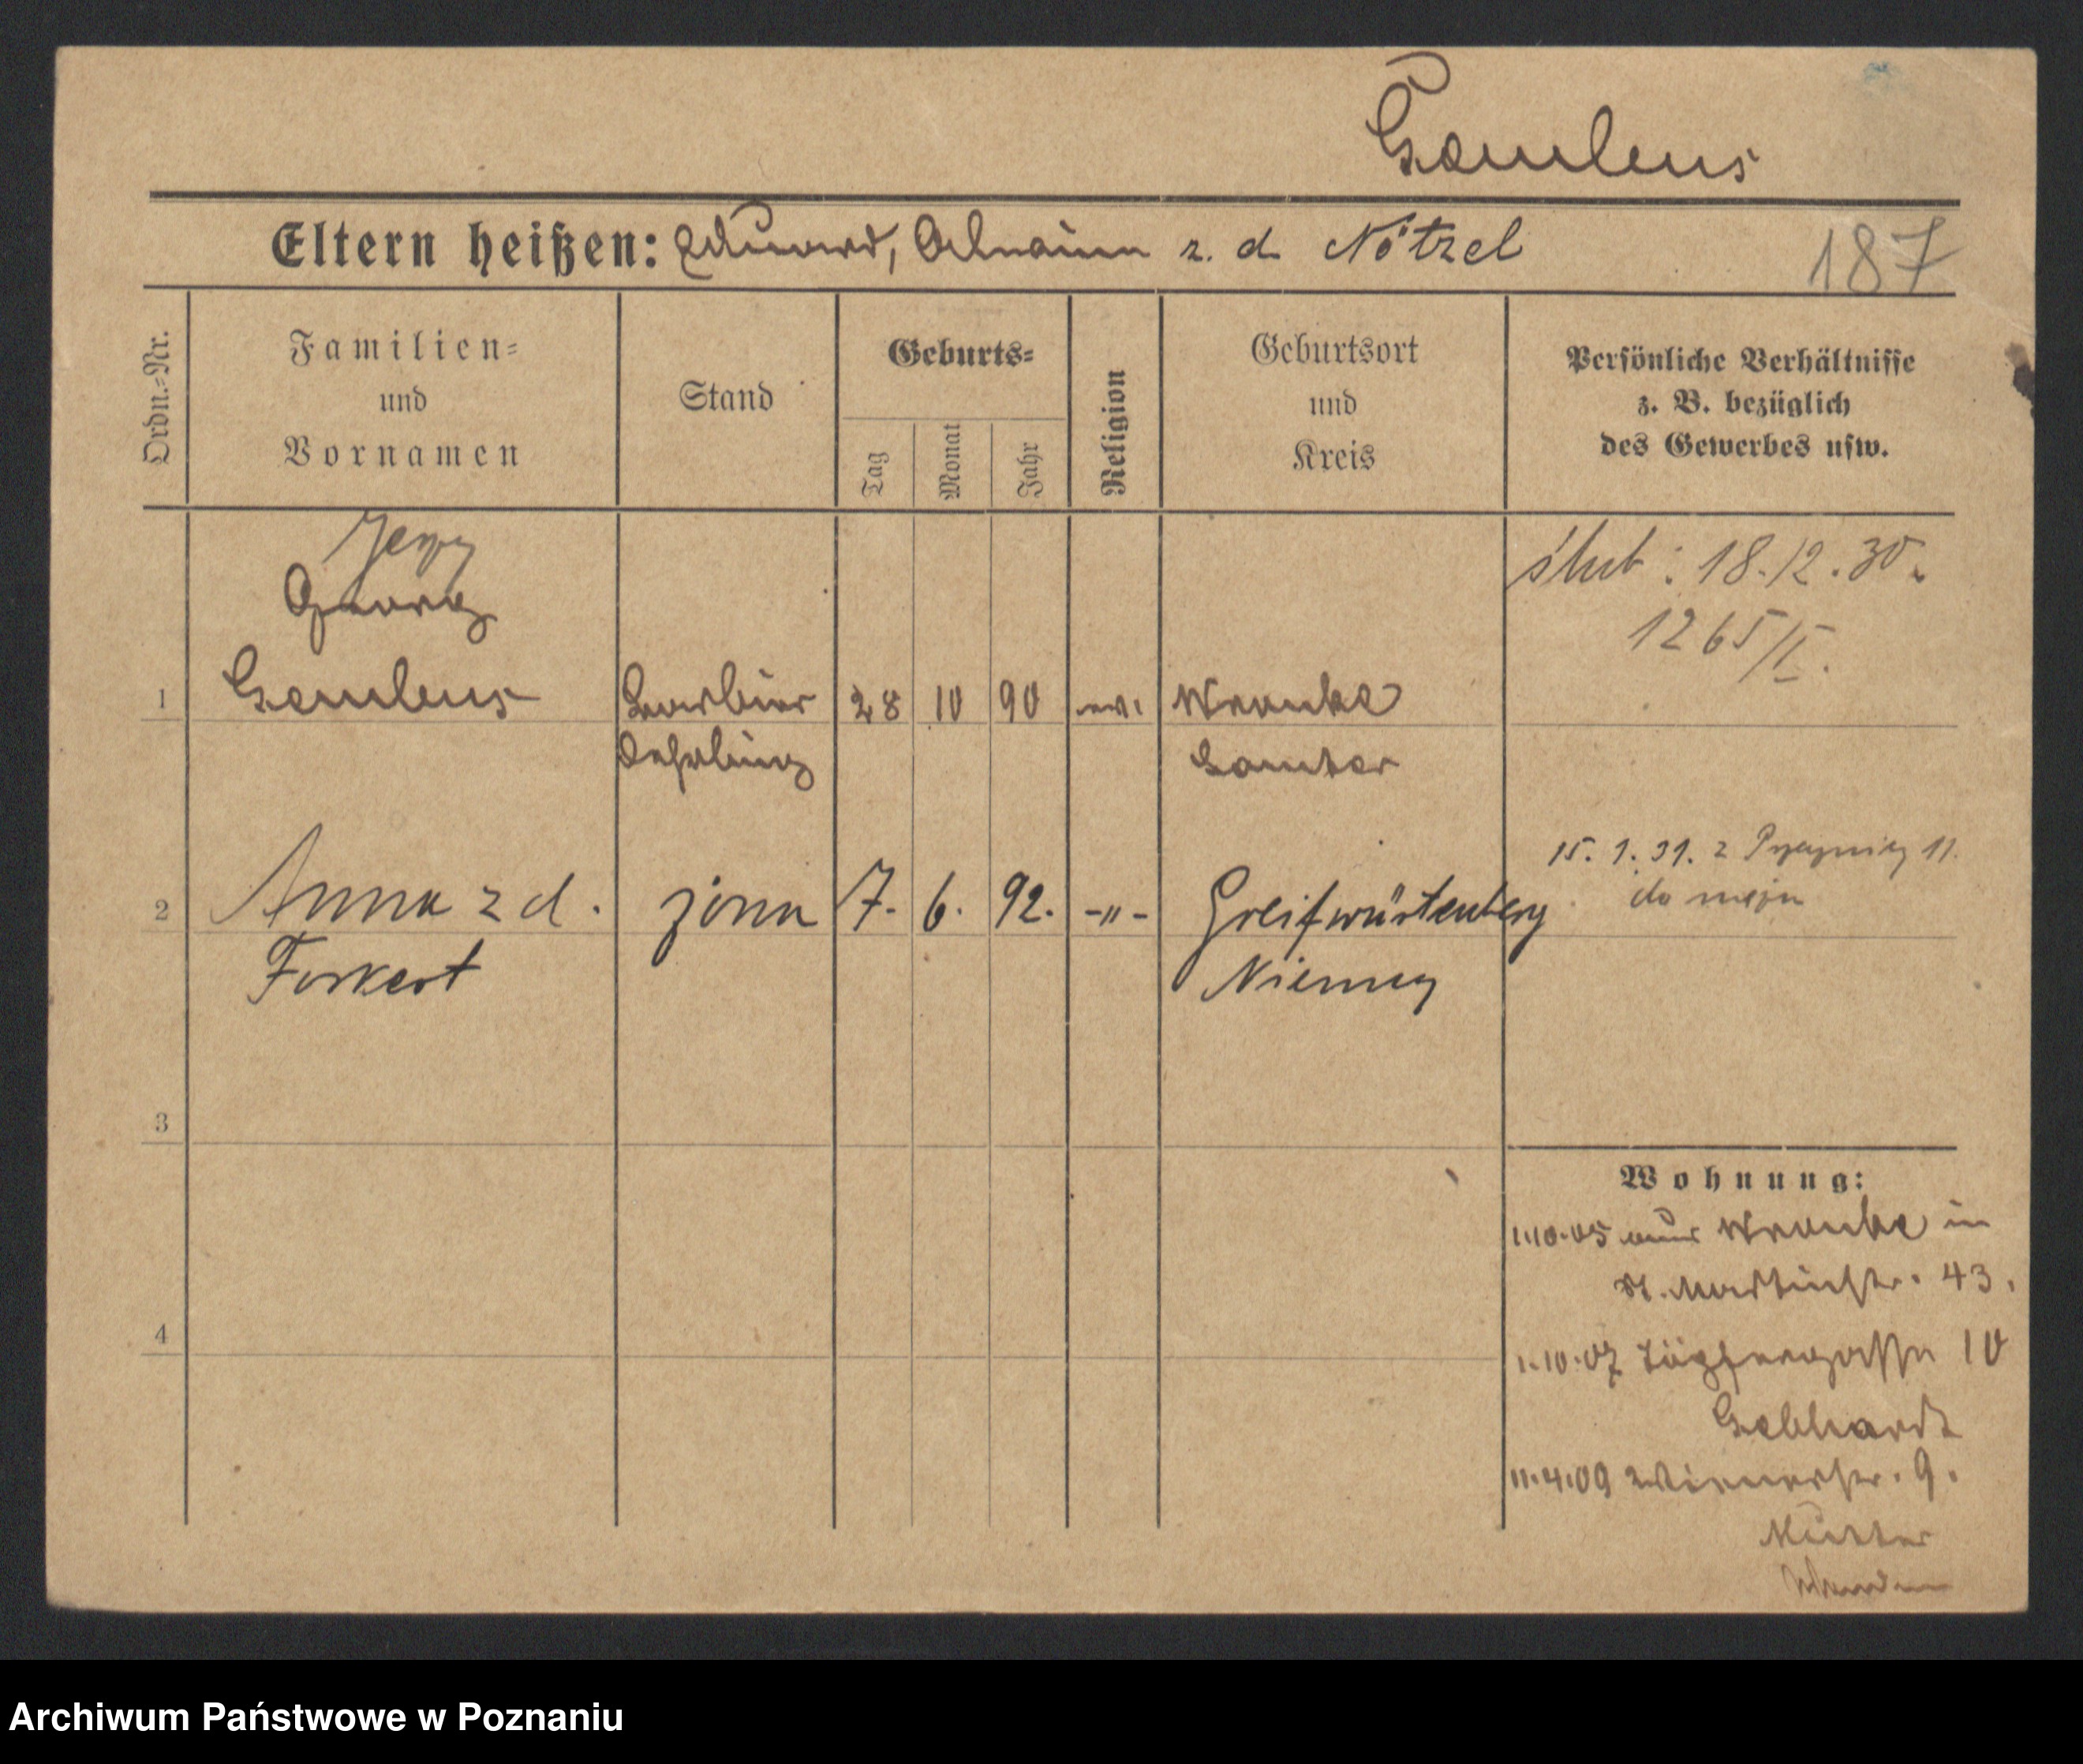 Gemlens
Eltern heißen: Eduard, z. d. Nötzel
187
Ordn.-Nr.
Familien- und Vornamen
Stand
Geburts-
Tag
Monat
Jahr
Religion
Geburtsort und Kreis
Persönliche Verhältnisse
z. B. bezüglich
des Gewerbes usw.
Jerzy
Georg
1 Barbier 28 10 90 ev. Wronke
Lehrling Samter
ślub: 18.12.30.
1265/I.
2 Anna z d. żona 7. 6. 92. -"- Greifwürtenberg
Forkert Niemcy
15. 1. 31. z 11.
do męża
3
4
Wohnung:
1.10.05 aus Wronke in
St. Martinstr. 43.
1.10.07 Töpfergasse 10
Gebhardt
11.4.09 Wienerstr. 9.
Mutter
Archiwum Państwowe w Poznaniu